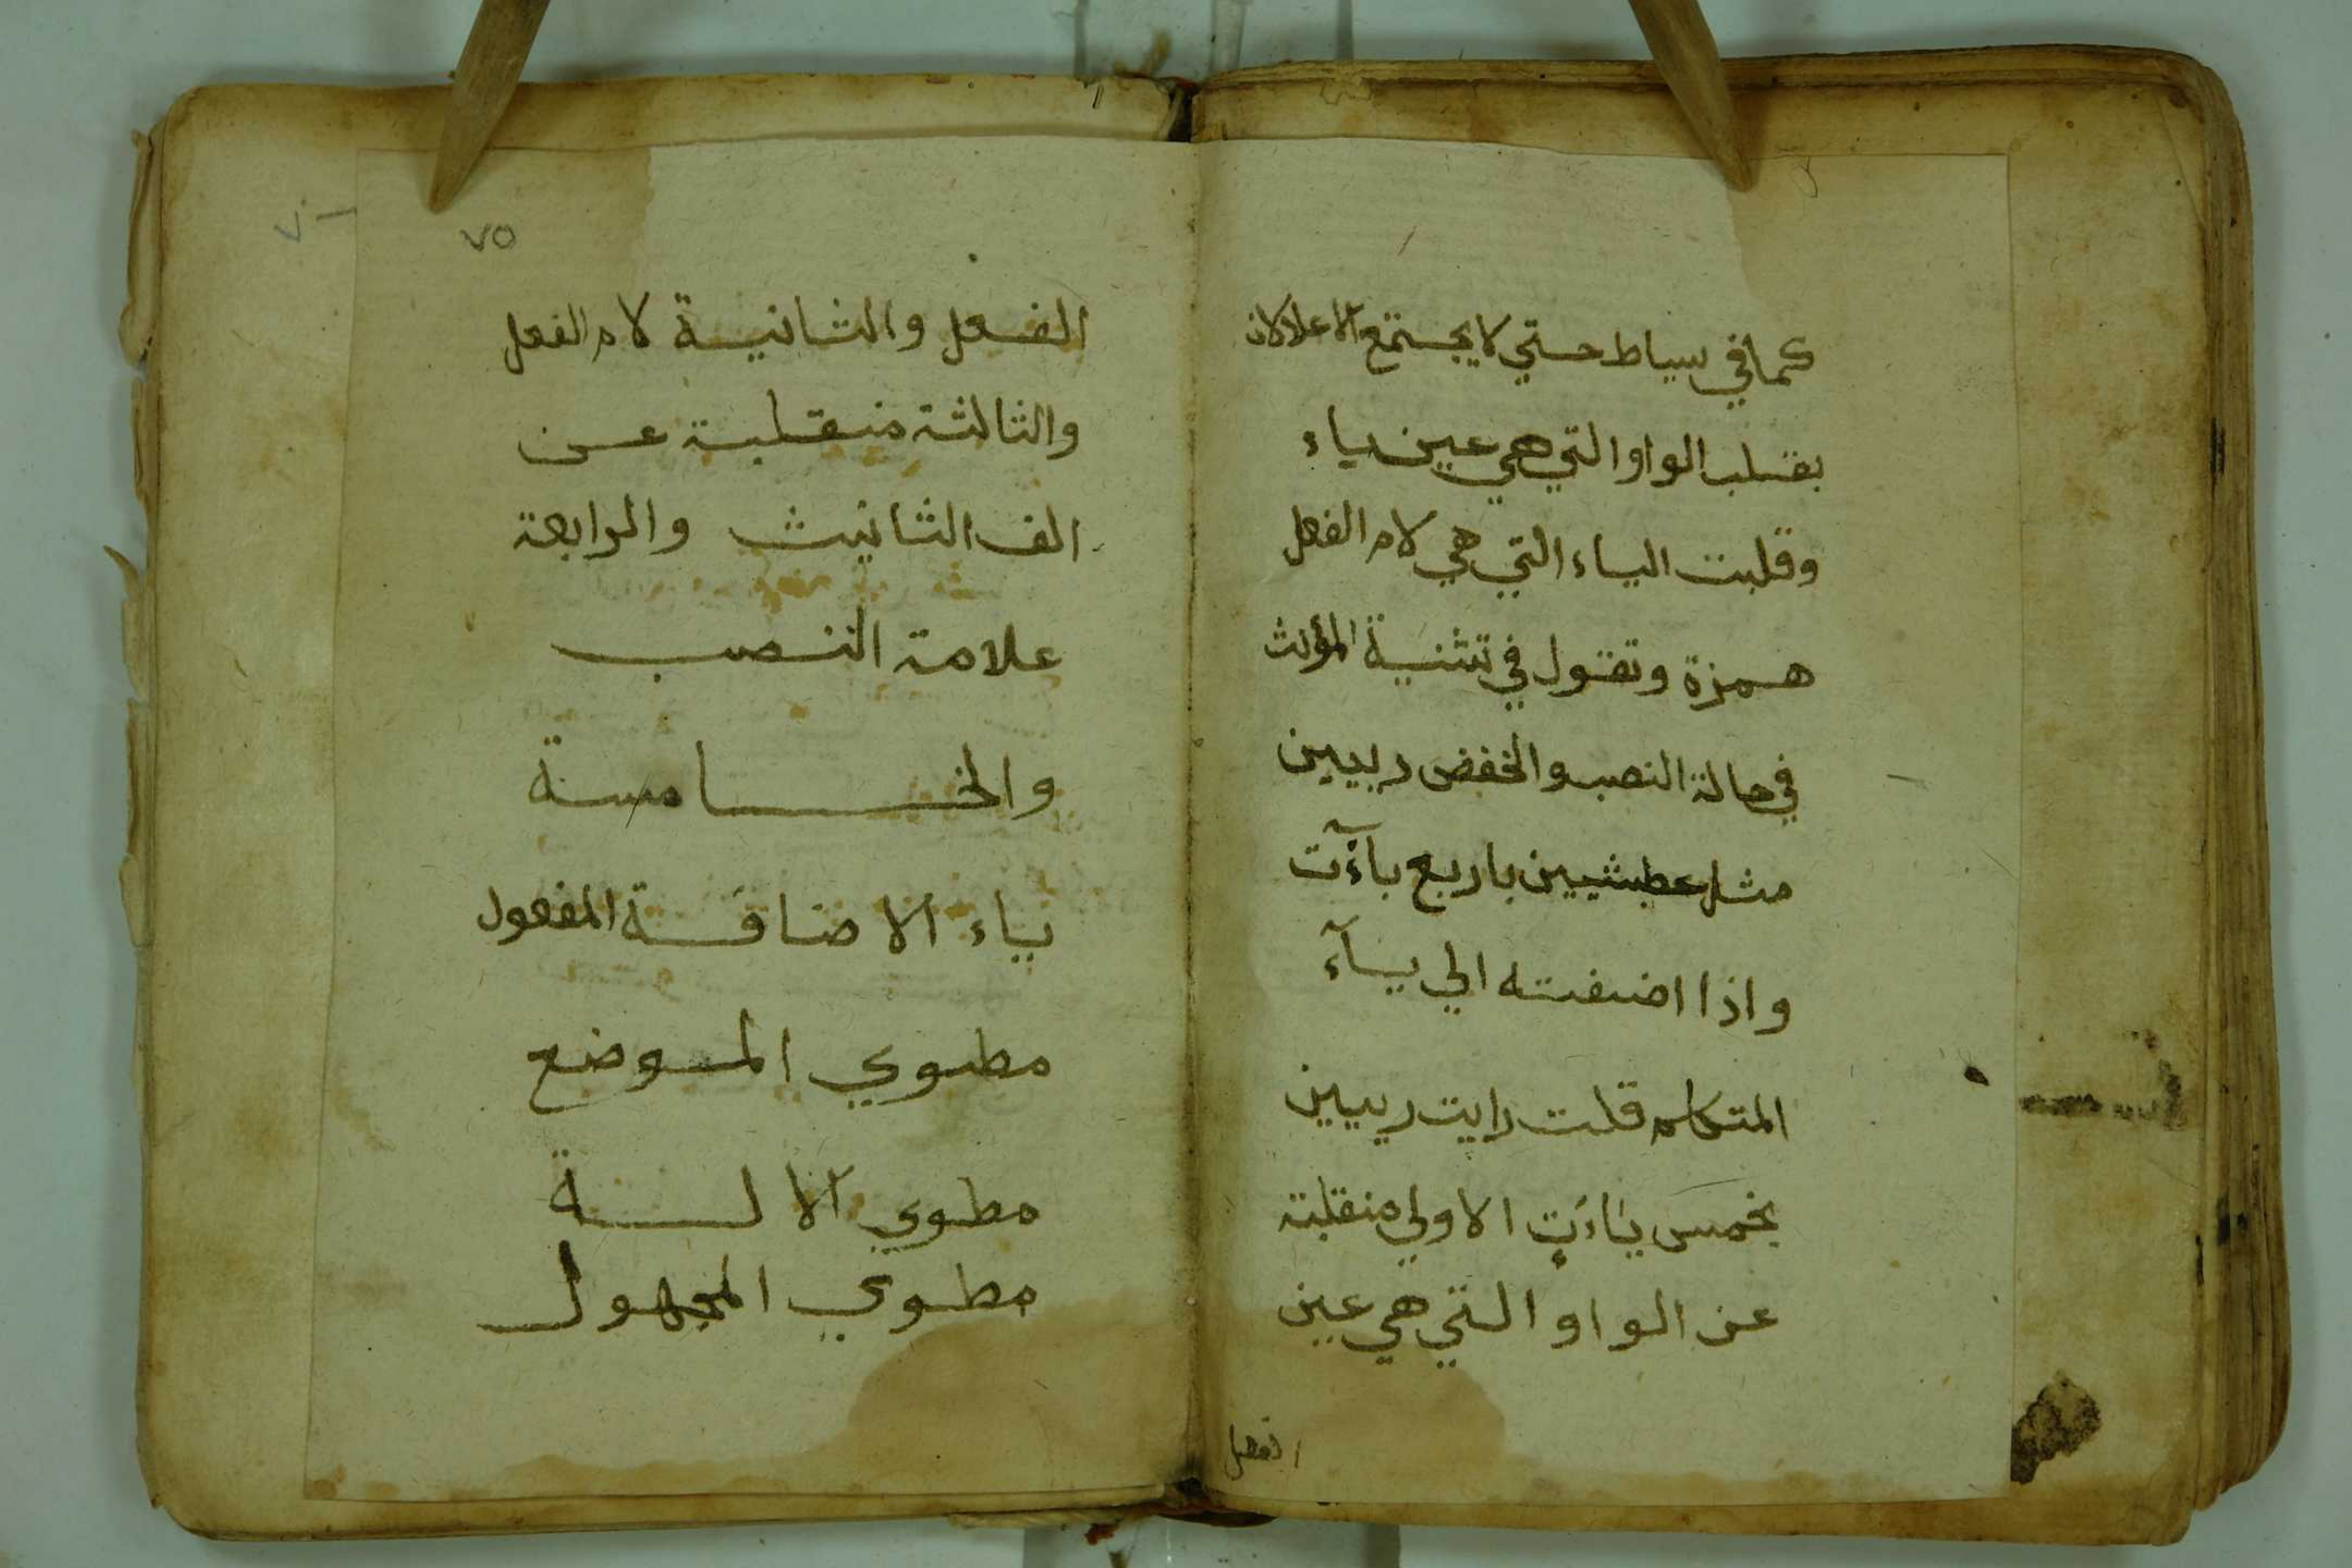 كما في سياط حتي لا يجتمع الاعلالان
بقلب الواو التي هي عين ياء
وقلبت الياء التي هي لام الفعل
همزة وتقول في تثنية المؤنث
في حالة النصب والخفض رييين
مثل عطشيين باربع ياآت
واذا اضفته الي يآء
المتكلم قلت رايت رييين
بخمس ياءت الاولي منقلبة
عن الواو التي هي عين
الفعل
٧٥
الفعل والثانية لام الفعل
والثالثة منقلبة عن
الف التانيث والرابعة
علامة النصب
والخامسة
ياء الاضافة المفعول
مطوي الموضع
مطوي الالة
مطوي المجهول